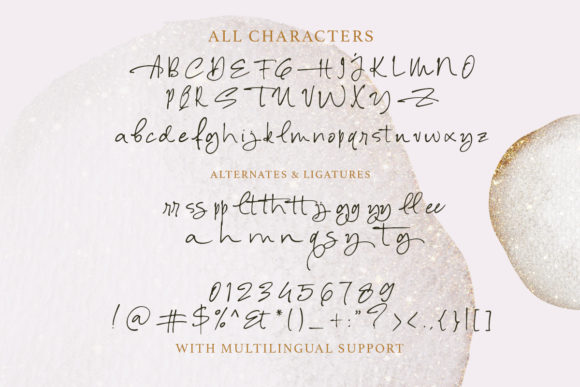 ALL CHARACTERS
A B C D E F G H I J K L M N O
P Q R S T U V W X Y Z
a b c d e f g h i j k l m n o p q r s t u v w x y z
ALTERNATES & LIGATURES
rr ss pp lt tt th tt ij gg yy ll ee
a h m n q s y t g
0 1 2 3 4 5 6 7 8 9
! @ # $ % ^ & * ( ) _ + : " ? > < . , { } | [ ]
WITH MULTILINGUAL SUPPORT